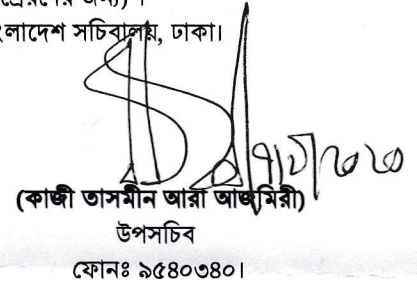 জন্য) ।
ংলাদেশ সচিবালয়, ঢাকা।
(কাজী তাসমীন আরা আজমিরী)
উপসচিব
ফোনঃ ৯৫৪০৩৪০।